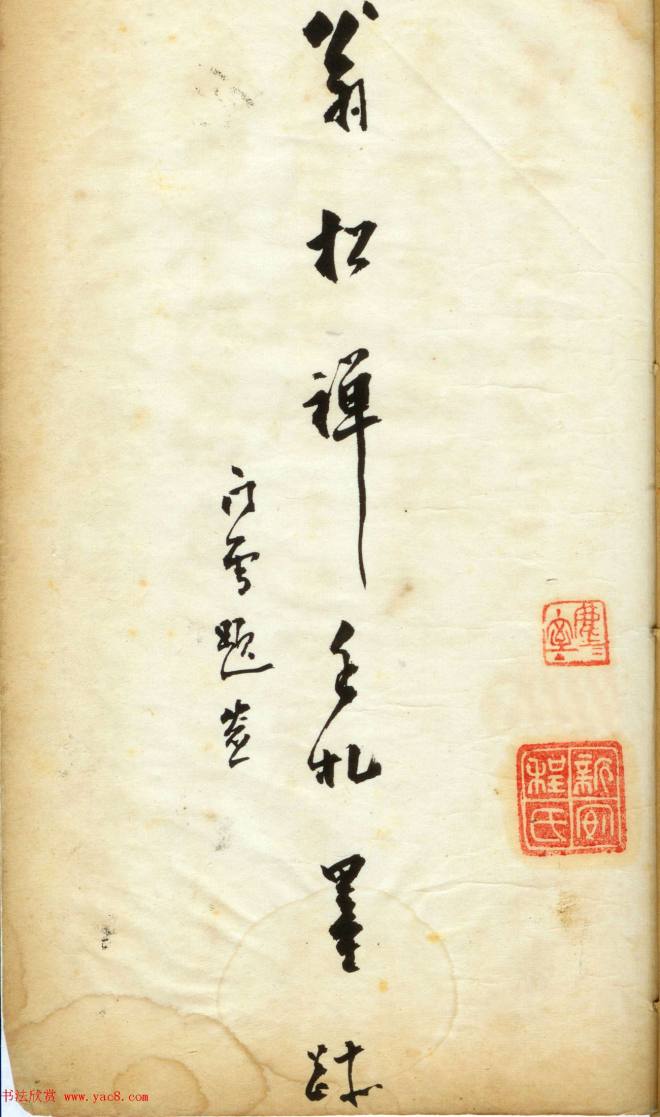 新安程氏
翁松禪手札墨跡
石雪題签
书法欣赏 www.yac8.com